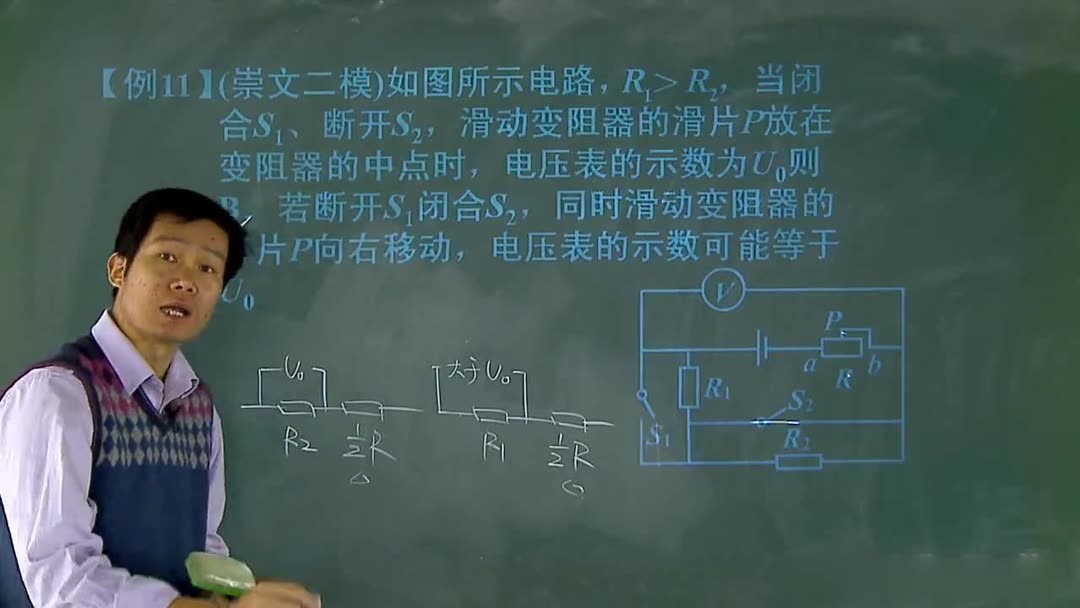 【例11】(崇文二模)如图所示电路,R₁>R₂,当闭
合S₁、断开S₂,滑动变阻器的滑片P放在
变阻器的中点时,电压表的示数为U₀则
若断开S₁闭合S₂,同时滑动变阻器的
片P向右移动,电压表的示数可能等于
U₀
V
P
a
R
b
R₁
S₂
S₁
R₂
U₀
R₂
½R
大于U₀
R₁
½R